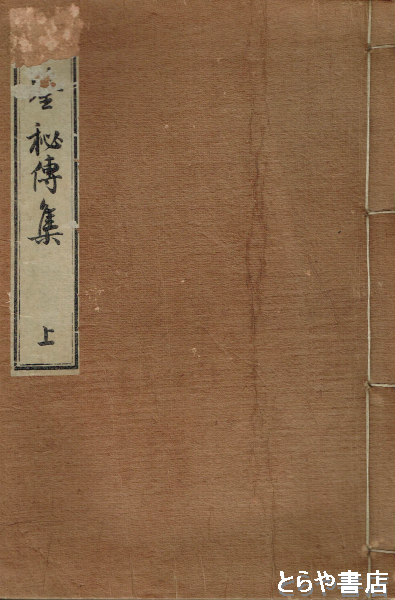 秘傳集
上
とらや書店